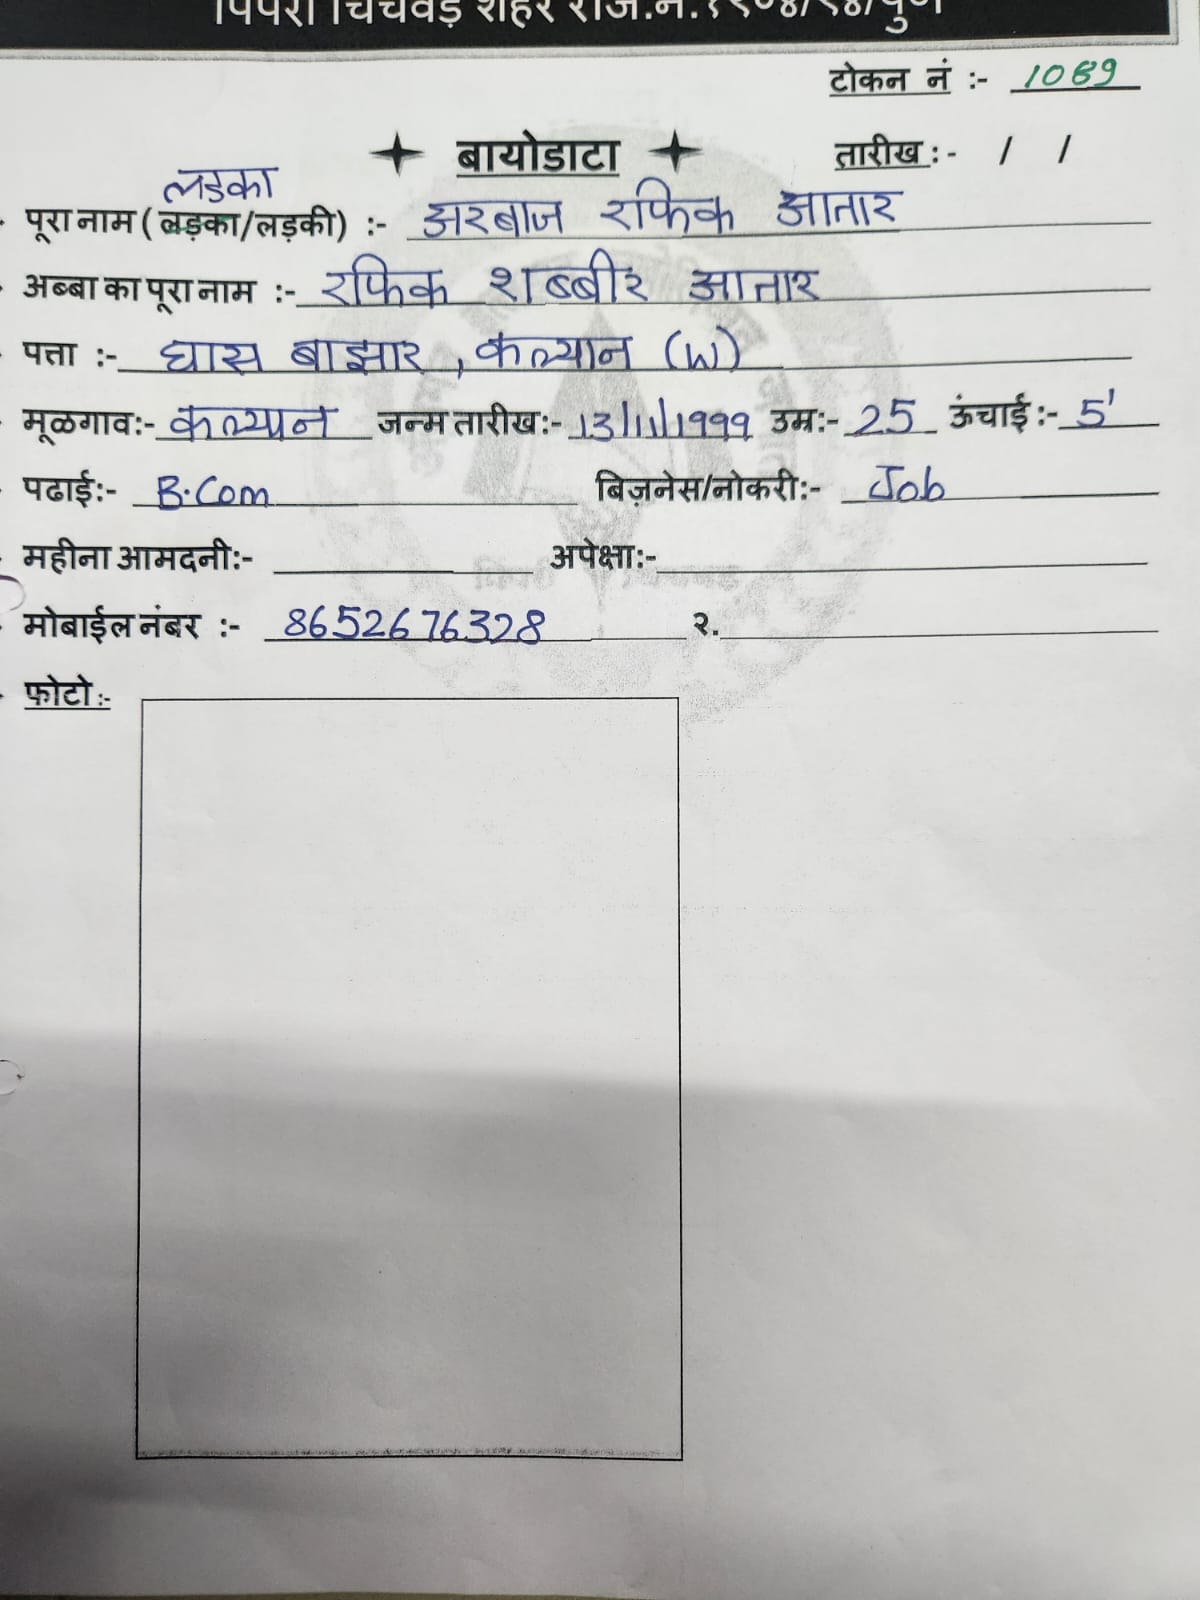 पिंपरी चिंचवड शहर रजि.नं.
टोकन नं :- 1089
बायोडाटा
तारीख :- / /
लडका
पूरा नाम ( लड़का/लड़की) :- अरबाज रफिक आतार
अब्बा का पूरा नाम :- रफिक शब्बीर आतार
पत्ता :- घास बाझार, कल्यान (W)
मूळगाव:- कल्यान जन्म तारीख:- 13/11/1999 उम्र:- 25 ऊंचाई :- 5'
पढाई:- B.Com बिज़नेस/नोकरी:- Job
महीना आमदनी:- अपेक्षा:-
मोबाईल नंबर :- 8652676328 २.
फोटो :-